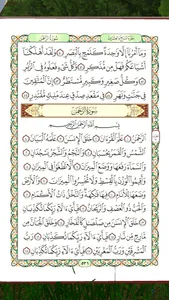 وَمَآ أَمْرُنَآ إِلَّا وَٰحِدَةٌ كَلَمْحٍۭ بِٱلْبَصَرِ ٥٠ وَلَقَدْ أَهْلَكْنَآ
أَشْيَاعَكُمْ فَهَلْ مِن مُّدَّكِرٍ ٥١ وَكُلُّ شَىْءٍ فَعَلُوهُ فِى ٱلزُّبُرِ
٥٢ وَكُلُّ صَغِيرٍ وَكَبِيرٍ مُّسْتَطَرٌ ٥٣ إِنَّ ٱلْمُتَّقِينَ
فِى جَنَّٰتٍ وَنَهَرٍ ٥٤ فِى مَقْعَدِ صِدْقٍ عِندَ مَلِيكٍ مُّقْتَدِرٍۭ ٥٥
سُورَةُ الرَّحْمَٰن
بِسْمِ ٱللَّهِ ٱلرَّحْمَٰنِ ٱلرَّحِيمِ
ٱلرَّحْمَٰنُ ١ عَلَّمَ ٱلْقُرْءَانَ ٢ خَلَقَ ٱلْإِنسَٰنَ ٣ عَلَّمَهُ ٱلْبَيَانَ
٤ ٱلشَّمْسُ وَٱلْقَمَرُ بِحُسْبَانٍ ٥ وَٱلنَّجْمُ وَٱلشَّجَرُ يَسْجُدَانِ
٦ وَٱلسَّمَآءَ رَفَعَهَا وَوَضَعَ ٱلْمِيزَانَ ٧ أَلَّا تَطْغَوْا۟ فِى ٱلْمِيزَانِ
٨ وَأَقِيمُوا۟ ٱلْوَزْنَ بِٱلْقِسْطِ وَلَا تُخْسِرُوا۟ ٱلْمِيزَانَ ٩ وَٱلْأَرْضَ
وَضَعَهَا لِلْأَنَامِ ١٠ فِيهَا فَٰكِهَةٌ وَٱلنَّخْلُ ذَاتُ ٱلْأَكْمَامِ ١١
وَٱلْحَبُّ ذُو ٱلْعَصْفِ وَٱلرَّيْحَانُ ١٢ فَبِأَىِّ ءَالَآءِ رَبِّكُمَا تُكَذِّبَانِ
١٣ خَلَقَ ٱلْإِنسَٰنَ مِن صَلْصَٰلٍ كَٱلْفَخَّارِ ١٤ وَخَلَقَ ٱلْجَآنَّ مِن
مَّارِجٍ مِّن نَّارٍ ١٥ فَبِأَىِّ ءَالَآءِ رَبِّكُمَا تُكَذِّبَانِ ١٦
رَبُّ ٱلْمَشْرِقَيْنِ وَرَبُّ ٱلْمَغْرِبَيْنِ ١٧ فَبِأَىِّ ءَالَآءِ رَبِّكُمَا تُكَذِّبَانِ ١٨
٥٣١